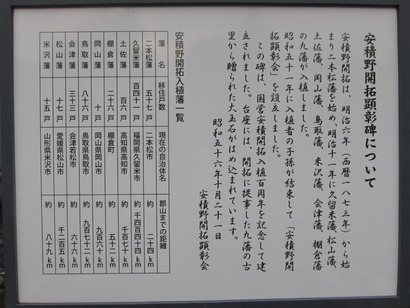 安積野開拓顕彰碑について
安積野開拓は、明治六年(西暦一八七三年)から始
まり二本松藩を始め、明治十一年に久留米藩、松山藩、
土佐藩、岡山藩、鳥取藩、米沢藩、会津藩、棚倉藩
の九藩が入植しました。
昭和五十一年に入植者の子孫が結束して「安積野開
拓顕彰会」を設立しました。
この碑は、国営安積開拓入植百周年を記念して建
立されました。台座には、開拓に従事した九藩の古
里から贈られた大玉石がはめ込まれています。
昭和五十六年十月二十一日
安積野開拓顕彰会
安積野開拓入植藩一覧
藩名 移住戸数 現在の自治体名 郡山までの距離
二本松藩 五十七戸 二本松市 約 二十四km
久留米藩 百四十一戸 福岡県久留米市 約 千四百四十km
土佐藩 百六戸 高知県高知市 約
棚倉藩 二十七戸 棚倉町 約 五十km
岡山藩 十戸 岡山県岡山市 約 九百六十km
鳥取藩 八十六戸 鳥取県鳥取市 約 九百七十二km
会津藩 三十三戸 会津若松市 約 六十六km
松山藩 十七戸 愛媛県松山市 約 千二百五km
米沢藩 十五戸 山形県米沢市 約 八十九km